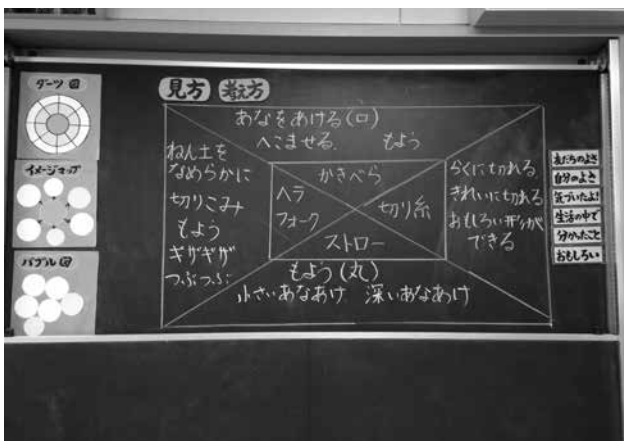 ダーツ図
イメージマップ
バブル図
見方 考え方
あなをあける(口)
へこませる。 もよう
ねん土を
なめらかに
切りこみ
もよう
ギザギザ
つぶつぶ
かきべら
ヘラ
フォーク
切り糸
ストロー
らくに切れる
きれいに切れる
おもしろい形が
できる
もよう(丸)
小さいあなあけ 深いあなあけ
友だちのよさ
自分のよさ
気づいたよ!
生活の中で
分かったこと
おもしろい